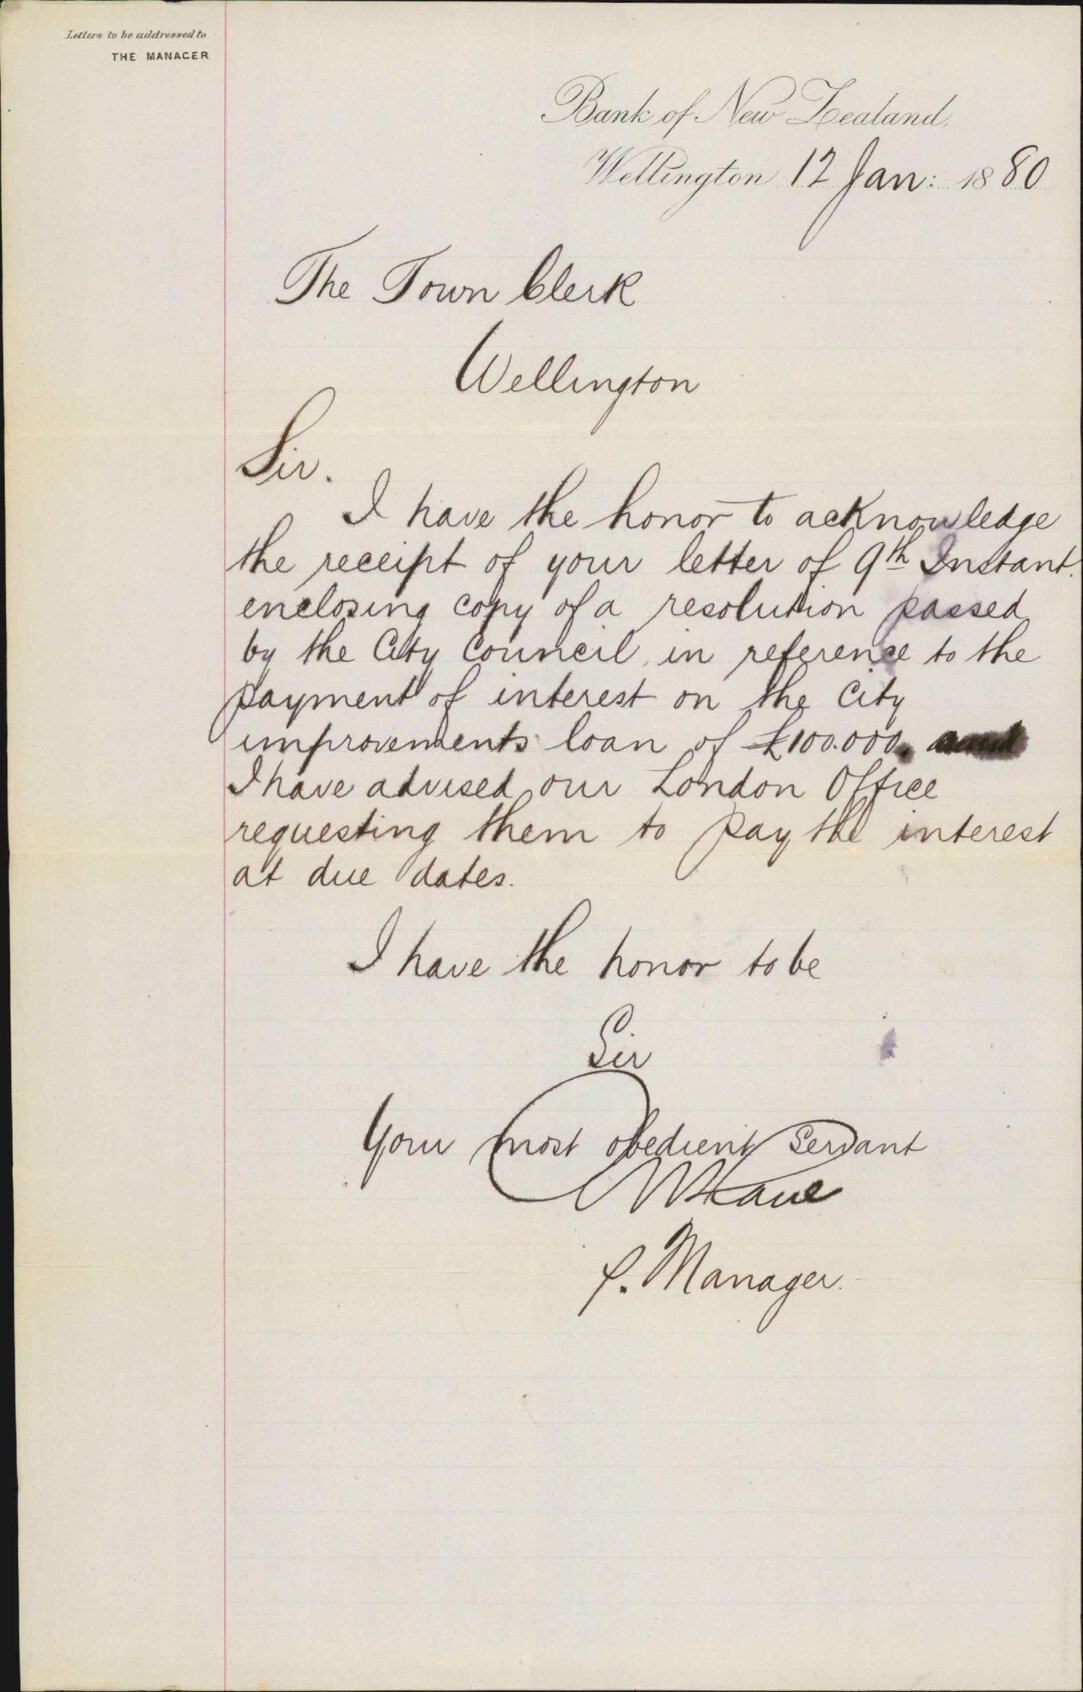 Letters to be addressed to
THE MANAGER
Bank of New Zealand.
Wellington 12 Jan: 1880
The Town Clerk
Wellington
Sir.
I have the honor to acknowledge
the receipt of your letter of 9th Instant.
enclosing copy of a resolution passed
by the City Council, in reference to the
payment of interest on the City
improvements loan of £100.000.
I have advised our London Office
requesting them to pay the interest
at due dates.
I have the honor to be
Sir
Your most obedient servant
p. Manager.